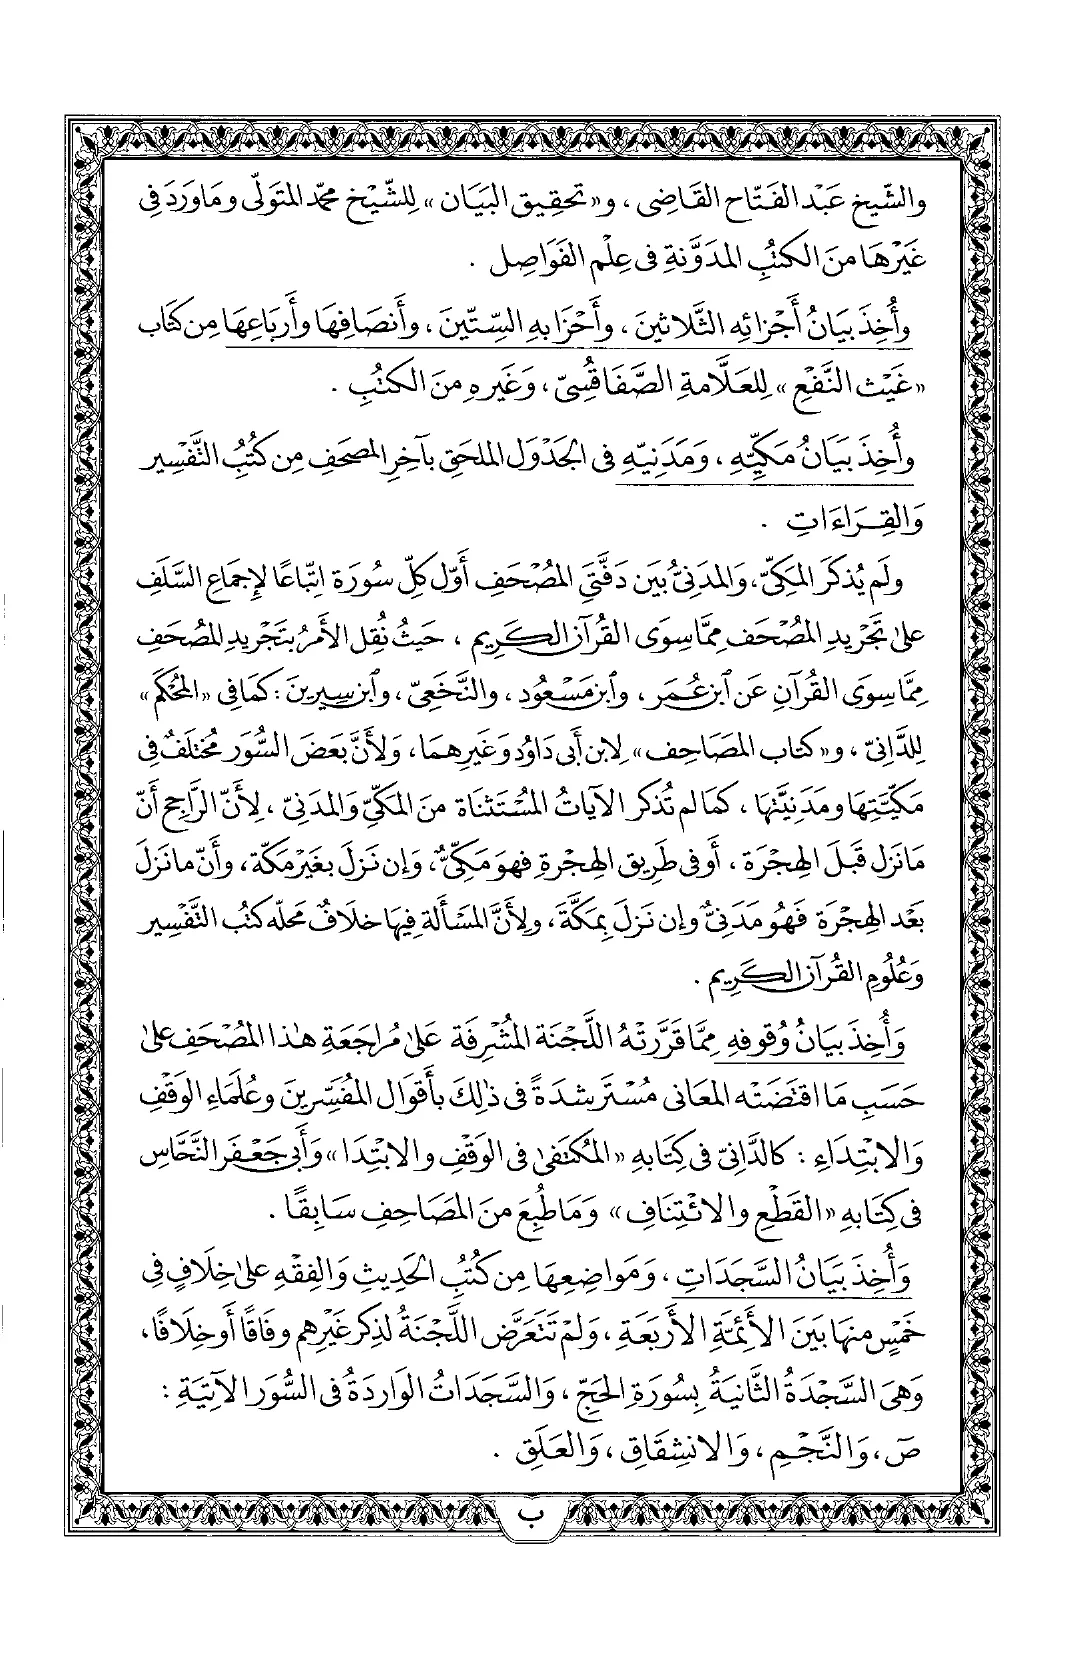 والشّيخ عَبْد الفَتّاح القَاضِى ، و « تحقِيق البَيَان » لِلشّيْخ محمّد المتَولّى ومَاوَرَدَ فى
غَيْرهَا منَ الكتُبِ المدَوَّنَةِ فى عِلْم الفَوَاصِل .
وأُخِذَ بَيَانُ أَجْزائِه الثَّلاثينَ ، وأَحْزابهِ السِّتّينَ ، وأَنصَافِهَا وأَربَاعِهَا مِن كتَاب
« غَيْث النَّفْعِ » لِلعَلَّامَةِ الصَّفَاقُسِىّ ، وَغَيره منَ الكتُبِ .
وأُخِذَ بَيَانُ مَكيِّهِ ، وَمَدَنِيّهِ فى الجَدْوَل الملحَقِ بآخِرِ المصْحَفِ مِن كتُبُِ التَّفْسِير
وَالقِرَاءَاتِ .
ولَم يُذكَر المَكىّ ، وَالمدَنىُّ بَيْن دَفَّتَىِ المُصْحَفِ أوّل كلِّ سُورَة اتِّبَاعًا لإجمَاعِ السَّلَفِ
عَلَى تَجْرِيدِ المُصْحَفِ مِمَّا سِوَى القُرْآنِ الكَرِيمِ ، حَيثُ نُقِل الأمْرُ بتَجْرِيدِ المُصْحَفِ
مِمَّا سِوَى القُرآنِ عَن ابنِ عُمَر ، وابنِ مَسْعُود ، والنَّخَعِىّ ، وابنِ سِيرينَ : كمَا فى « المُحْكَم »
لِلدَّانِىّ ، و « كتاب المصَاحِف » لابن أبى دَاوُد وَغَيرهمَا ، وَلأنَّ بَعضَ السُّوَر مُختَلَفٌ فى
مَكّيَّتِهَا ومَدَنيَّتهَا ، كمَا لم تُذكر الآيَاتُ المُسْتَثنَاة منَ المَكىِّ وَالمدَنىّ ، لِأنّ الرَّاجِحَ أنّ
مَا نَزل قَبلَ الهِجْرَة ، أو فى طَرِيق الهِجْرةِ فهوَ مَكىٌّ ، وَإن نَزلَ بغَيْرمَكّة ، وأنّ ما نَزلَ
بَعْد الهِجْرَة فَهُو مَدَنىٌّ وإن نَزلَ بمَكَّةَ ، ولِأنَّ المَسْألَة فِيهَا خلَافٌ مَحلّه كتُبُ التَّفْسِير
وَعُلُومِ القُرآنِ الكَرِيمِ .
وَأُخِذَ بَيَانُ وُقُوفِهِ مِمَّا قَرَّرَتْهُ اللَّجْنَة المُشْرِفَة عَلَى مُرَاجَعَةِ هٰذا المُصْحَفِ عَلَى
حَسَبِ مَا اقتَضَتْه المعَانى مُسْتَرشدَةً فى ذلِكَ بأقْوَال المفَسِّرِينَ وعُلمَاءِ الوَقْفِ
وَالابْتِدَاءِ : كالدَّانِىّ فى كِتَابهِ « المُكْتَفَى فى الوَقْفِ والابْتِدَا » وَأبى جَعْفَر النَّحَّاس
فى كِتَابهِ « القَطْعِ والائْتِنَافِ » وَمَا طُبِعَ منَ المَصَاحِفِ سَابِقًا .
وَأُخِذَ بَيَانُ السَّجَدَاتِ ، وَمَواضِعِهَا مِن كتُبُِ الحَدِيثِ وَالفِقْهِ عَلَى خلَافٍ فى
خَمْسٍ منهَا بَيْنَ الأَئِمَّةِ الأَرْبَعَةِ ، وَلَمْ تَتَعَرَّضِ اللَّجْنَةُ لذِكرِ غَيْرِهِم وِفَاقًا أو خِلَافًا ،
وَهىَ السَّجْدَةُ الثَّانيَةُ بِسُورَةِ الحَجِّ ، وَالسَّجَدَاتُ الوَارِدَةُ فى السُّوَر الآتِيَةِ :
صٓ ، وَالنَّجْمِ ، وَالانشِقَاقِ ، وَالعَلَقِ .
ب